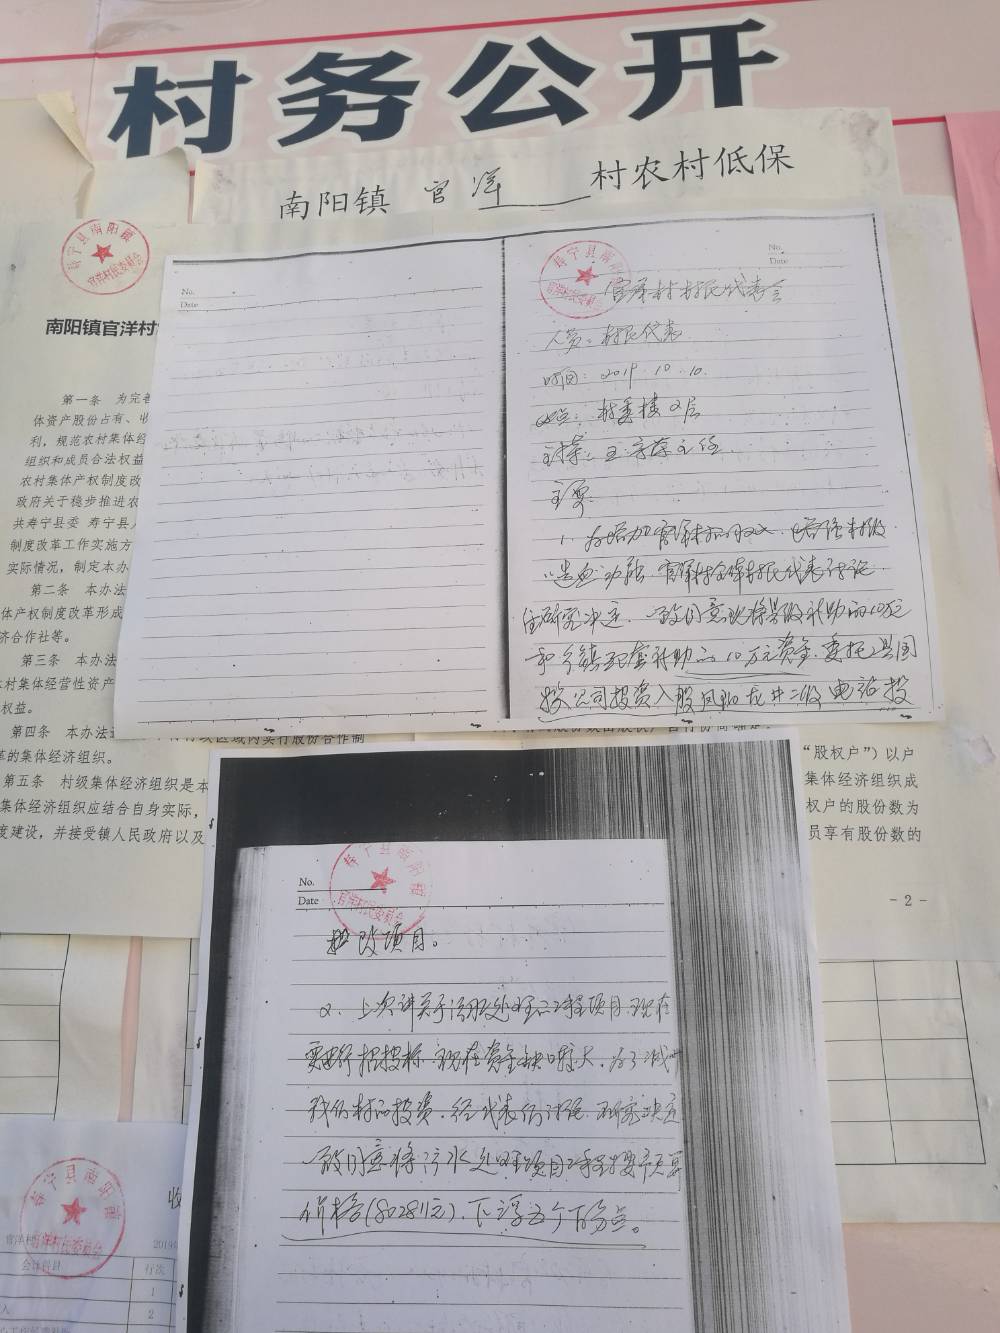 村务公开
南阳镇 官洋 村农村低保
寿宁县南阳镇
官洋村民委员会
南阳镇官洋村
第一条 为完善
体资产股份占有、收
利，规范农村集体经
组织和成员合法权益
农村集体产权制度改
政府关于稳步推进农
共寿宁县委 寿宁县人
制度改革工作实施方
实际情况，制定本办
第二条 本办法
体产权制度改革形成
济合作社等。
第三条 本办法
村集体经营性资产
权益。
第四条 本办法
区域内实行股份合作制
革的集体经济组织。
第五条 村级集体经济组织是本
集体经济组织应结合自身实际，
度建设，并接受镇人民政府以及
“股权户”）以户
集体经济组织成
权户的股份数为
员享有股份数的
- 2 -
No.
Date
No.
Date
寿宁县南阳
官洋村民委
官洋村村民代表会
人员：村民代表
时间：2019.10.10.
地点：村委楼2层
主持：王 主任
主要：
1、为增加官洋村的收入，增强村级
造血功能，官洋村全体村民代表讨论
研究决定，一致同意将县级补助的10万
和乡镇配套补助的10万元资金，委托县国
投公司投资入股 二级电站投
No.
Date
寿宁县南阳镇
官洋村民委员会
改项目。
2、上次讲关于污水处理的工程项目，现在
要进行招投标，现在资金缺口较大，为了减少
我们村的投资，经代表们讨论，研究决定
一致同意将污水处理项目工程按预算
价格(802811元)，下浮五个百分点。
寿宁县南阳镇
官洋村民委员会
收
官洋村
2019年
会计科目
行次
1
2